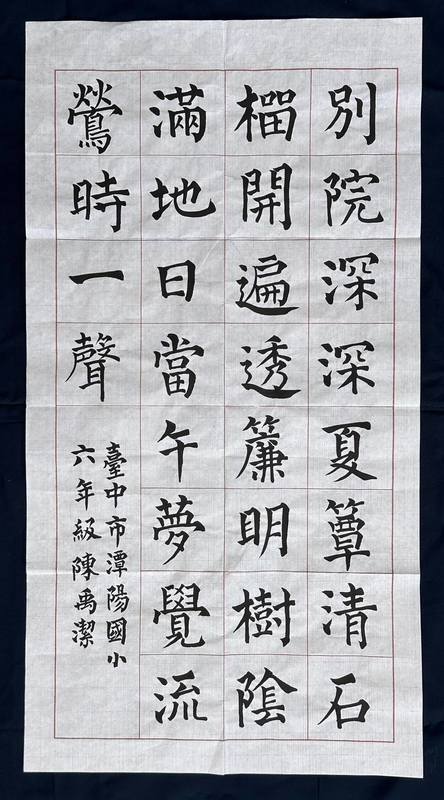 別院深深夏簟清石
榴開遍透簾明樹陰
滿地日當午夢覺流
鶯時一聲
臺中市潭陽國小
六年級陳禹潔